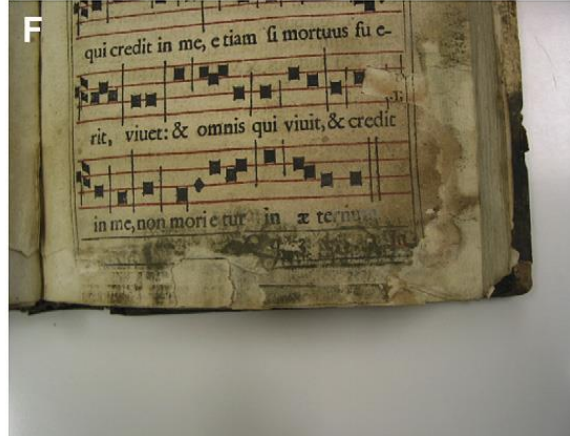 F
qui credit in me, etiam si mortuus fu e-
rit, viuet: & omnis qui viuit, & credit
in me, non mori e tur in æ ternum